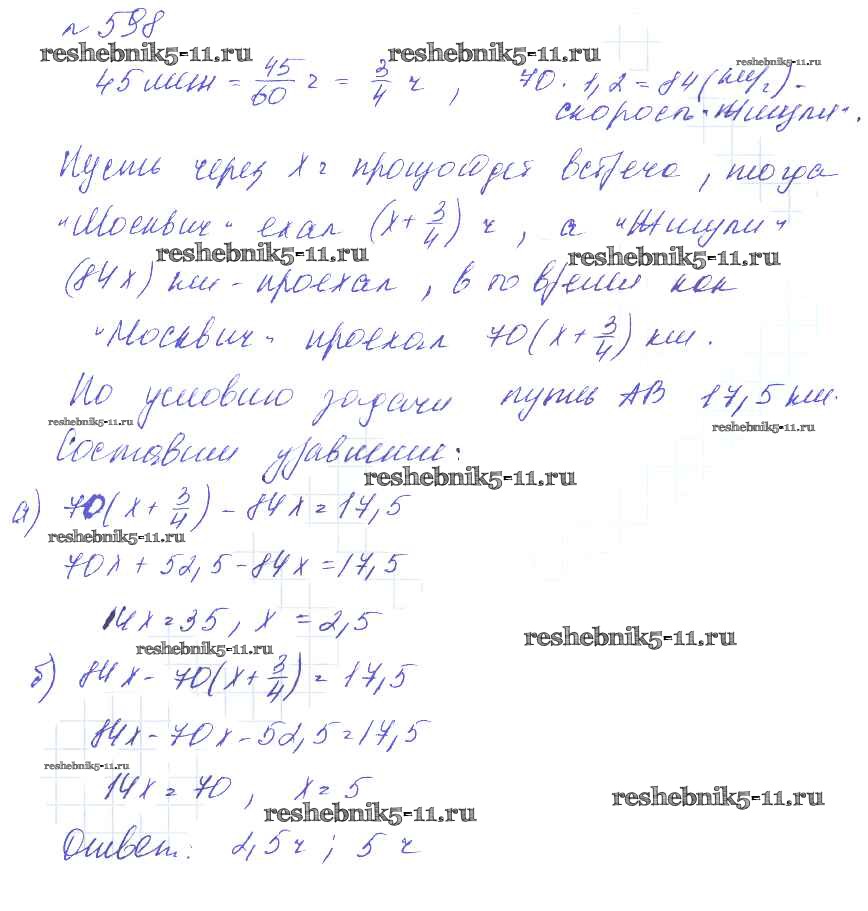 № 598
reshebnik5-11.ru reshebnik5-11.ru reshebnik5-11.ru
45 мин = 45/60 ч = 3/4 ч , 70 · 1,2 = 84 (км/ч) -
скорость "Жигули".
Пусть через x ч произойдет встреча, тогда
"Москвич" ехал (x + 3/4) ч, а "Жигули"
reshebnik5-11.ru reshebnik5-11.ru
(84x) км - проехал, в то время как
"Москвич" проехал 70(x + 3/4) км.
По условию задачи путь AB 17,5 км.
reshebnik5-11.ru reshebnik5-11.ru
Составим уравнение:
reshebnik5-11.ru
а) 70(x + 3/4) - 84x = 17,5
reshebnik5-11.ru
70x + 52,5 - 84x = 17,5
14x = 35, x = 2,5
reshebnik5-11.ru reshebnik5-11.ru
б) 84x - 70(x + 3/4) = 17,5
84x - 70x - 52,5 = 17,5
reshebnik5-11.ru
14x = 70, x = 5
reshebnik5-11.ru reshebnik5-11.ru
Ответ: 2,5 ч; 5 ч